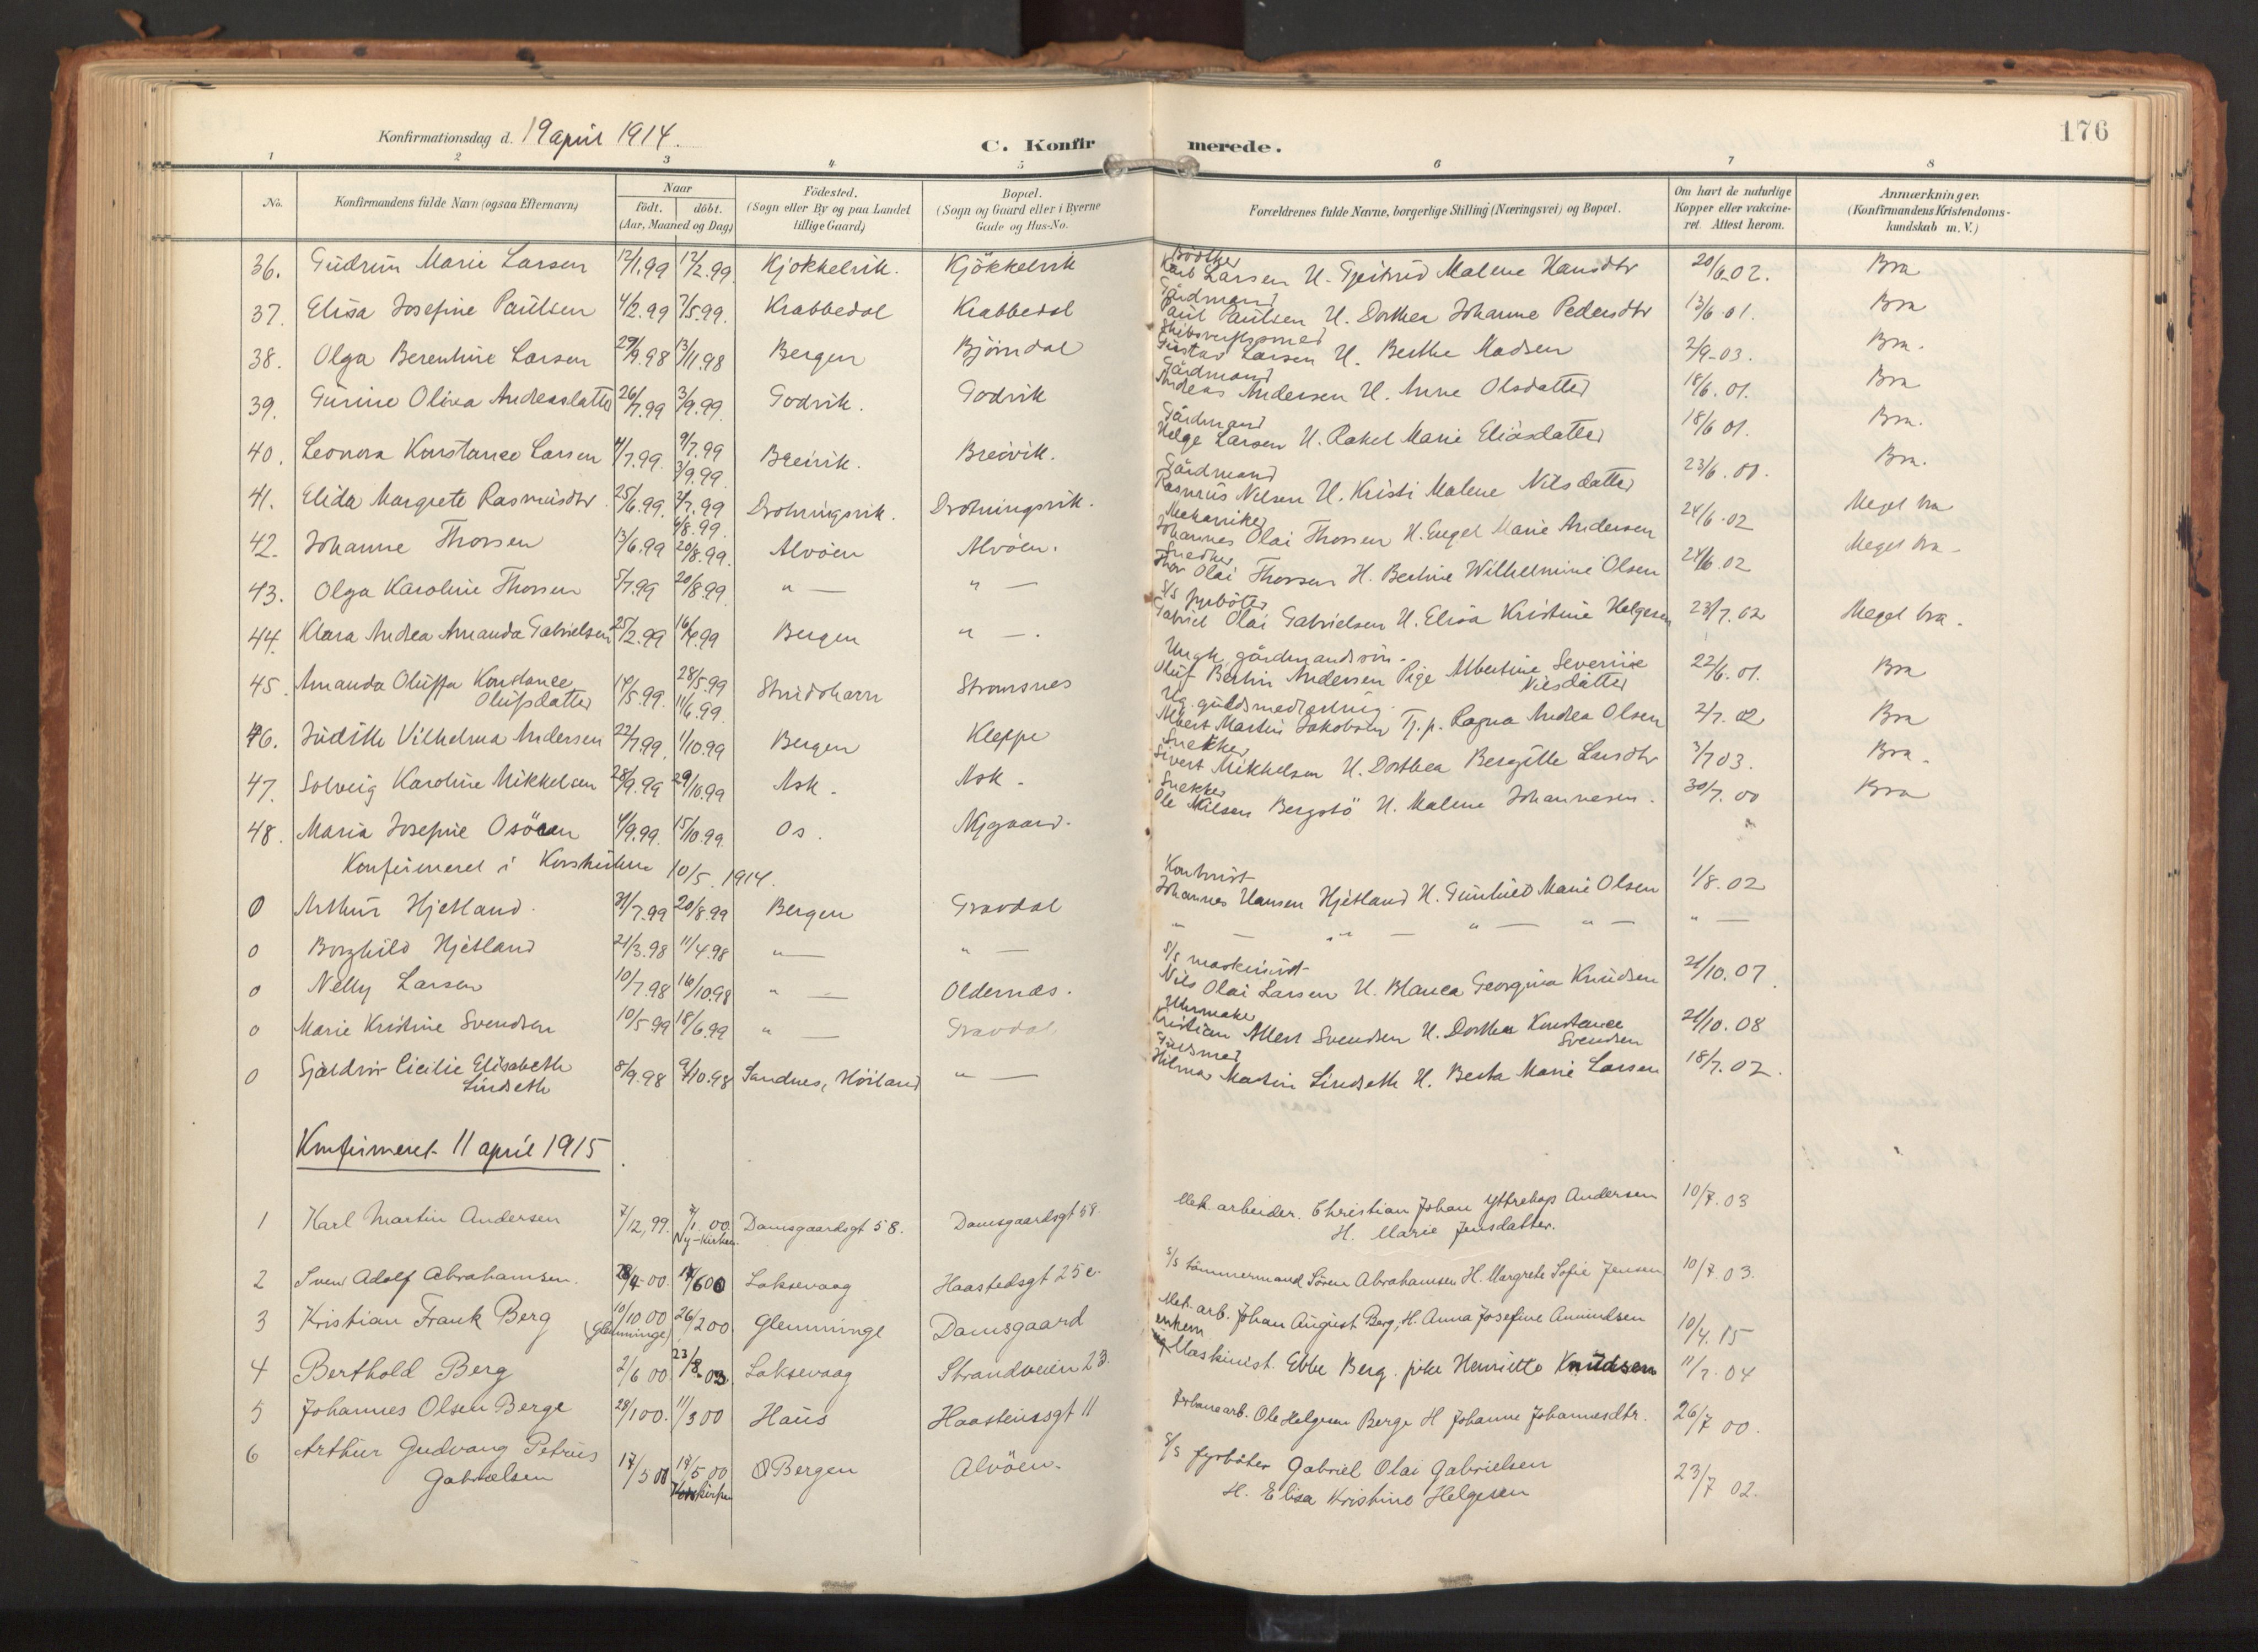 Konfirmationsdag d. 19 april 1914.
C. Konfirmerede.
176
1 2 3 4 5 6 7 8
No.
Konfirmandens fulde Navn (ogsaa Efternavn)
Naar
födt. döbt.
(Aar, Maaned og Dag)
Födested.
(Sogn eller By og paa Landet
tillige Gaard)
Bopæl.
(Sogn og Gaard eller i Byerne
Gade og Hus-No.
Forældrenes fulde Navne, borgerlige Stilling (Næringsvei) og Bopæl.
Om havt de naturlige
Kopper eller vakcine-
ret. Attest herom.
Anmærkninger.
(Konfirmandens Kristendoms-
kundskab m. V.)
Bödtker
36. Gudrun Marie Larsen 12/1.99 12/2.99 Kjökkelvik. Kjökkelvik Larsen H. Gjertrud Malene Hansdtr 20/6.02. Bra
Gårdmand
37. Elisa Josefine Paulsen 4/2.99 7/5.99. Krabbedal Krabbedal Paul Paulsen H. Dorthea Johanne Pedersdtr 13/6.01. Bra
38. Olga Berentine Larsen 29/9.98 13/11.98 Bergen Bjørndal Gustav Larsen H. Berthe Madsen 2/9-03. Bra.
Gårdmand
39. Gurine Oliva Andreasdatter 26/7.99 3/9.99. Godvik. Godvik Andreas Andersen H. Anne Olsdatter 18/6.01. Bra
Gårdmand
40. Leonora Konstance Larsen 4/7.99. 9/7.99 3/9.99. Breivik. Breivik. Helge Larsen H. Rakel Marie Eliasdatter 18/6 01. Bra.
Gårdmand
41. Elida Margrete Rasmusdtr 25/6.99. 2/7.99 6/8.99. Drotningsvik. Drotningsvik. Rasmus Nilsen H. Kristi Malene Nilsdatter 23/6.00. Bra.
Mekaniker
42. Johanne Thorsen 13/6.99 20/8.99. Alvöen Alvöen. Johannes Olai Thorsen H. Engel Marie Andersen 24/6.02 Meget bra
Snedker
43. Olga Karoline Thorsen 5/7.99 20/8.99. " — " — Thor Olai Thorsen H. Bertine Wilhelmine Olsen 24/6.02 Meget bra.
S/S fyrböter
44. Klara Andrea Amanda Gabrielsen 25/2.99 16/4.99 Bergen " —. Gabriel Olai Gabrielsen H. Elisa Kristine Helgesen 23/7.02 Meget bra.
Ungk. gårdmandssön.
45. Amanda Oluffa Konstance 14/5.99. 28/5.99 Strudshavn Stromsnes Oluf Bertin Andersen Pige Albertine Severine 22/6.01. Bra
Olufsdatter 11/6.99. Nilsdatter
46. Judith Vilhelma Andersen 22/7.99. 1/10.99 Bergen Kleppe Albert Martin Jakobsen Tj.p. Ragna Andrea Olsen 2/7.02 Bra
Snekker
47. Solveig Karoline Mikkelsen 28/9.99 29/10.99 Ask. Ask. Sivert Mikkelsen H. Dorthea Bergitte Larsdtr 3/7 03. Bra.
Snekker
48. Maria Josefine Osören 4/9.99. 15/10.99. Os. Nygaard. Ole Nilsen Bergstö H. Malene Johannesen. 30/7.00 Bra
Konfirmeret i Korskirken 10/5.1914.
Kontorist
0 Arthur Hjetland. 31/7.99 20/8.99 Bergen Gravdal Johannes Hansen Hjetland H. Gunhild Marie Olsen 1/8.02
0 Borghild Hjetland 21/3.98 11/4.98 " — " — " — " — " — " — " —
S/S maskinist
0 Nelly Larsen 10/7.98 16/10.98 " — Oldernæs. Nils Olai Larsen H. Blanca Georgina Knudsen 21/10.07.
Uhrmaker
0 Marie Kristine Svendsen 10/5 99 18/6.99 " — Gravdal Kristian Albert Svendsen H. Dorthea Konstance 21/10.08
Svendsen
0 Sjaldvor Cicilie Elisabeth 8/9.98 9/10.98 Sandnes, Höiland " — Hilmar Martin Lindseth H. Berta Marie Larsen 18/7.02.
Lindseth
Konfirmeret 11 april 1915
1 Karl Martin Andersen 7/12,99. 7/1 00. Damsgaardsgt 58. Damsgaardsgt 58 Mek. arbeider. Christian Johan Yttrehop Andersen 10/7.03
Ny-kirken. H. Marie Jensdatter.
2 Svend Adolf Abrahamsen. 28/4-00. 17/6 00 Laksevaag Haastedsgt 25 c. S/S tömmermand Sören Abrahamsen H. Margrete Sofie Jensen 10/7.03.
3 Kristian Frank Berg 10/10 00 26/2 00. Glemminge Damsgaard Mek. arb. Johan August Berg, H. Anna Josefine Amundsen 10/4.15
(Glemminge) enkem
4 Berthold Berg 2/6 00 23/8-03. Laksevaag Strandveien 23. Maskinist Ebbe Berg. pike Henriette Knudsen 11/7.04
5 Johannes Olsen Berge 28/1 00. 11/3 00 Haus Haasteinsgt 11 Ole Helgesen Berge H Johanne Johannesdtr. 26/7 00.
6 Arthur Gudvang Petrus 17/3 00 17/5 00 Bergen Alvöen. S/S fyrböter Gabriel Olai Gabrielsen 23/7 02.
Gabrielsen Korskirken H. Elisa Kristine Helgesen